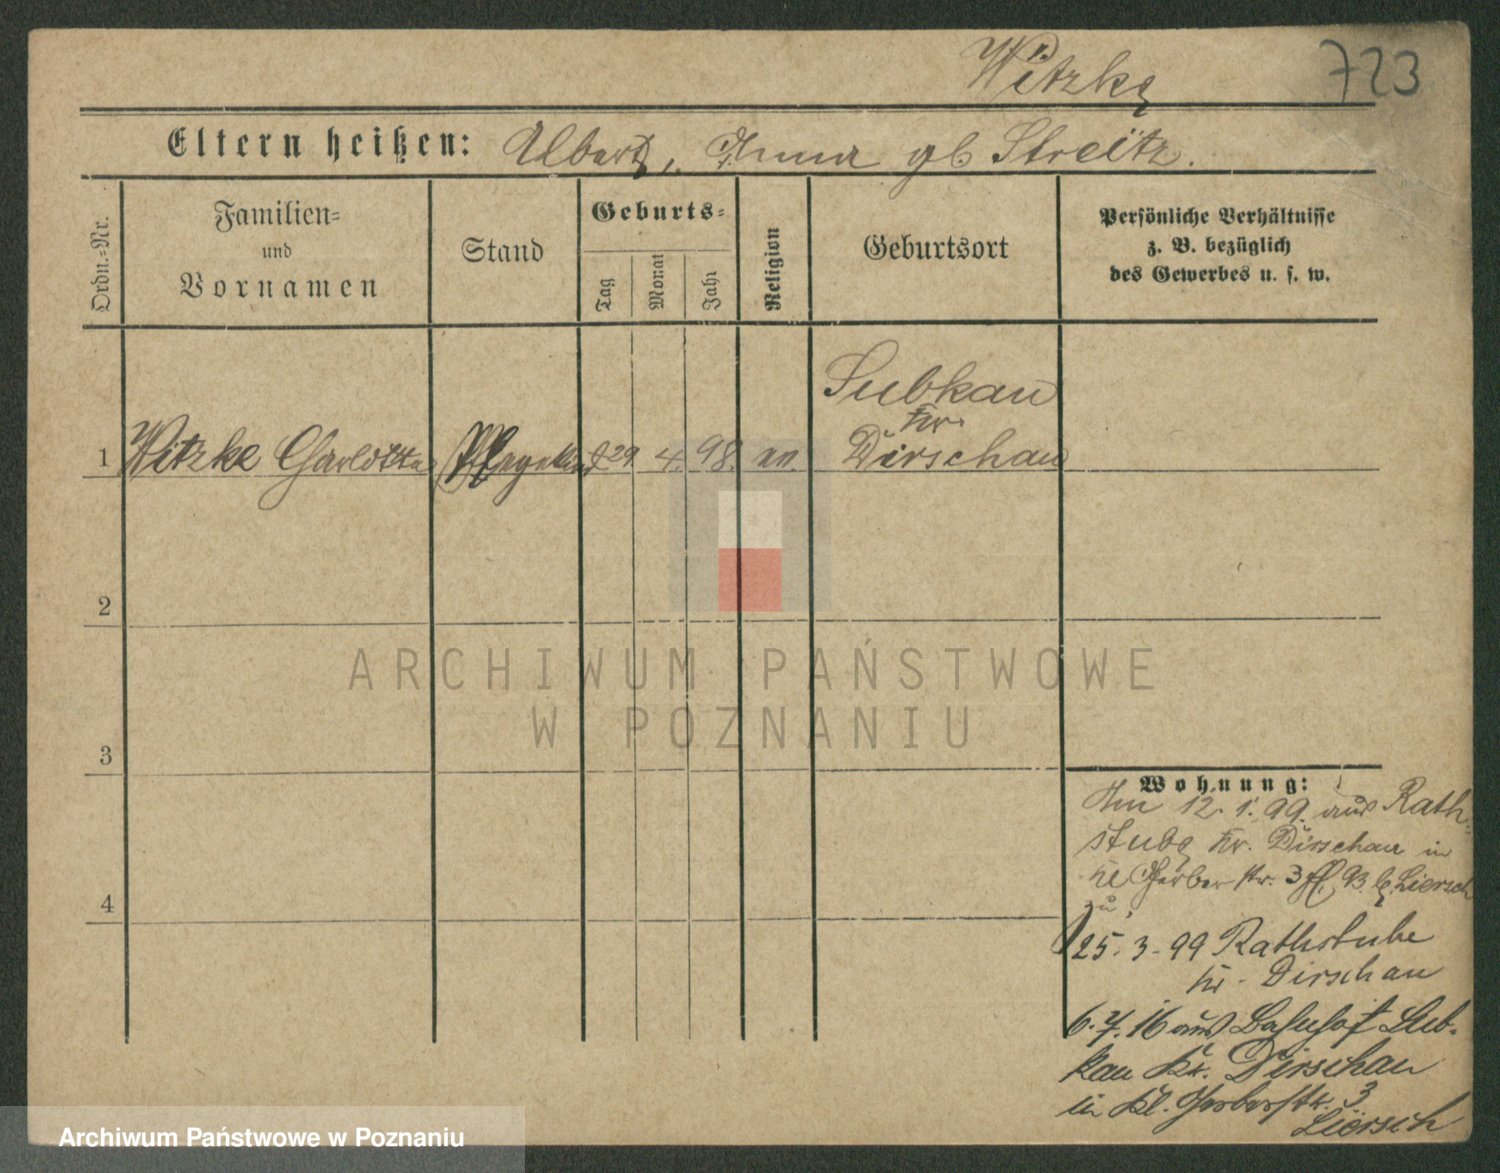 Witzke
723
Eltern heißen: Albert, Anna gb Streitz.
Ordn.-Nr.
Familien-
und
Vornamen
Stand
Geburts-
Tag
Monat
Jahr
Religion
Geburtsort
Persönliche Verhältnisse
z. B. bezüglich
des Gewerbes u. s. w.
1 Witzke Charlotte Pflegekind 29 4. 98.
Subkau
Kr.
Dirschau
2
3
4
ARCHIWUM PAŃSTWOWE
W POZNANIU
Wohnung:
Am 12. 1. 99. aus Rath-
stube Kr. Dirschau in
Kl Gerber str. 3 b. Liersch
zu
25. 3. 99 Rathstube
Kr. Dirschau
6. 7. 16 aus Bahnhof Sub-
kau Kr. Dirschau
in Kl. Gerberstr. 3
Liersch
Archiwum Państwowe w Poznaniu